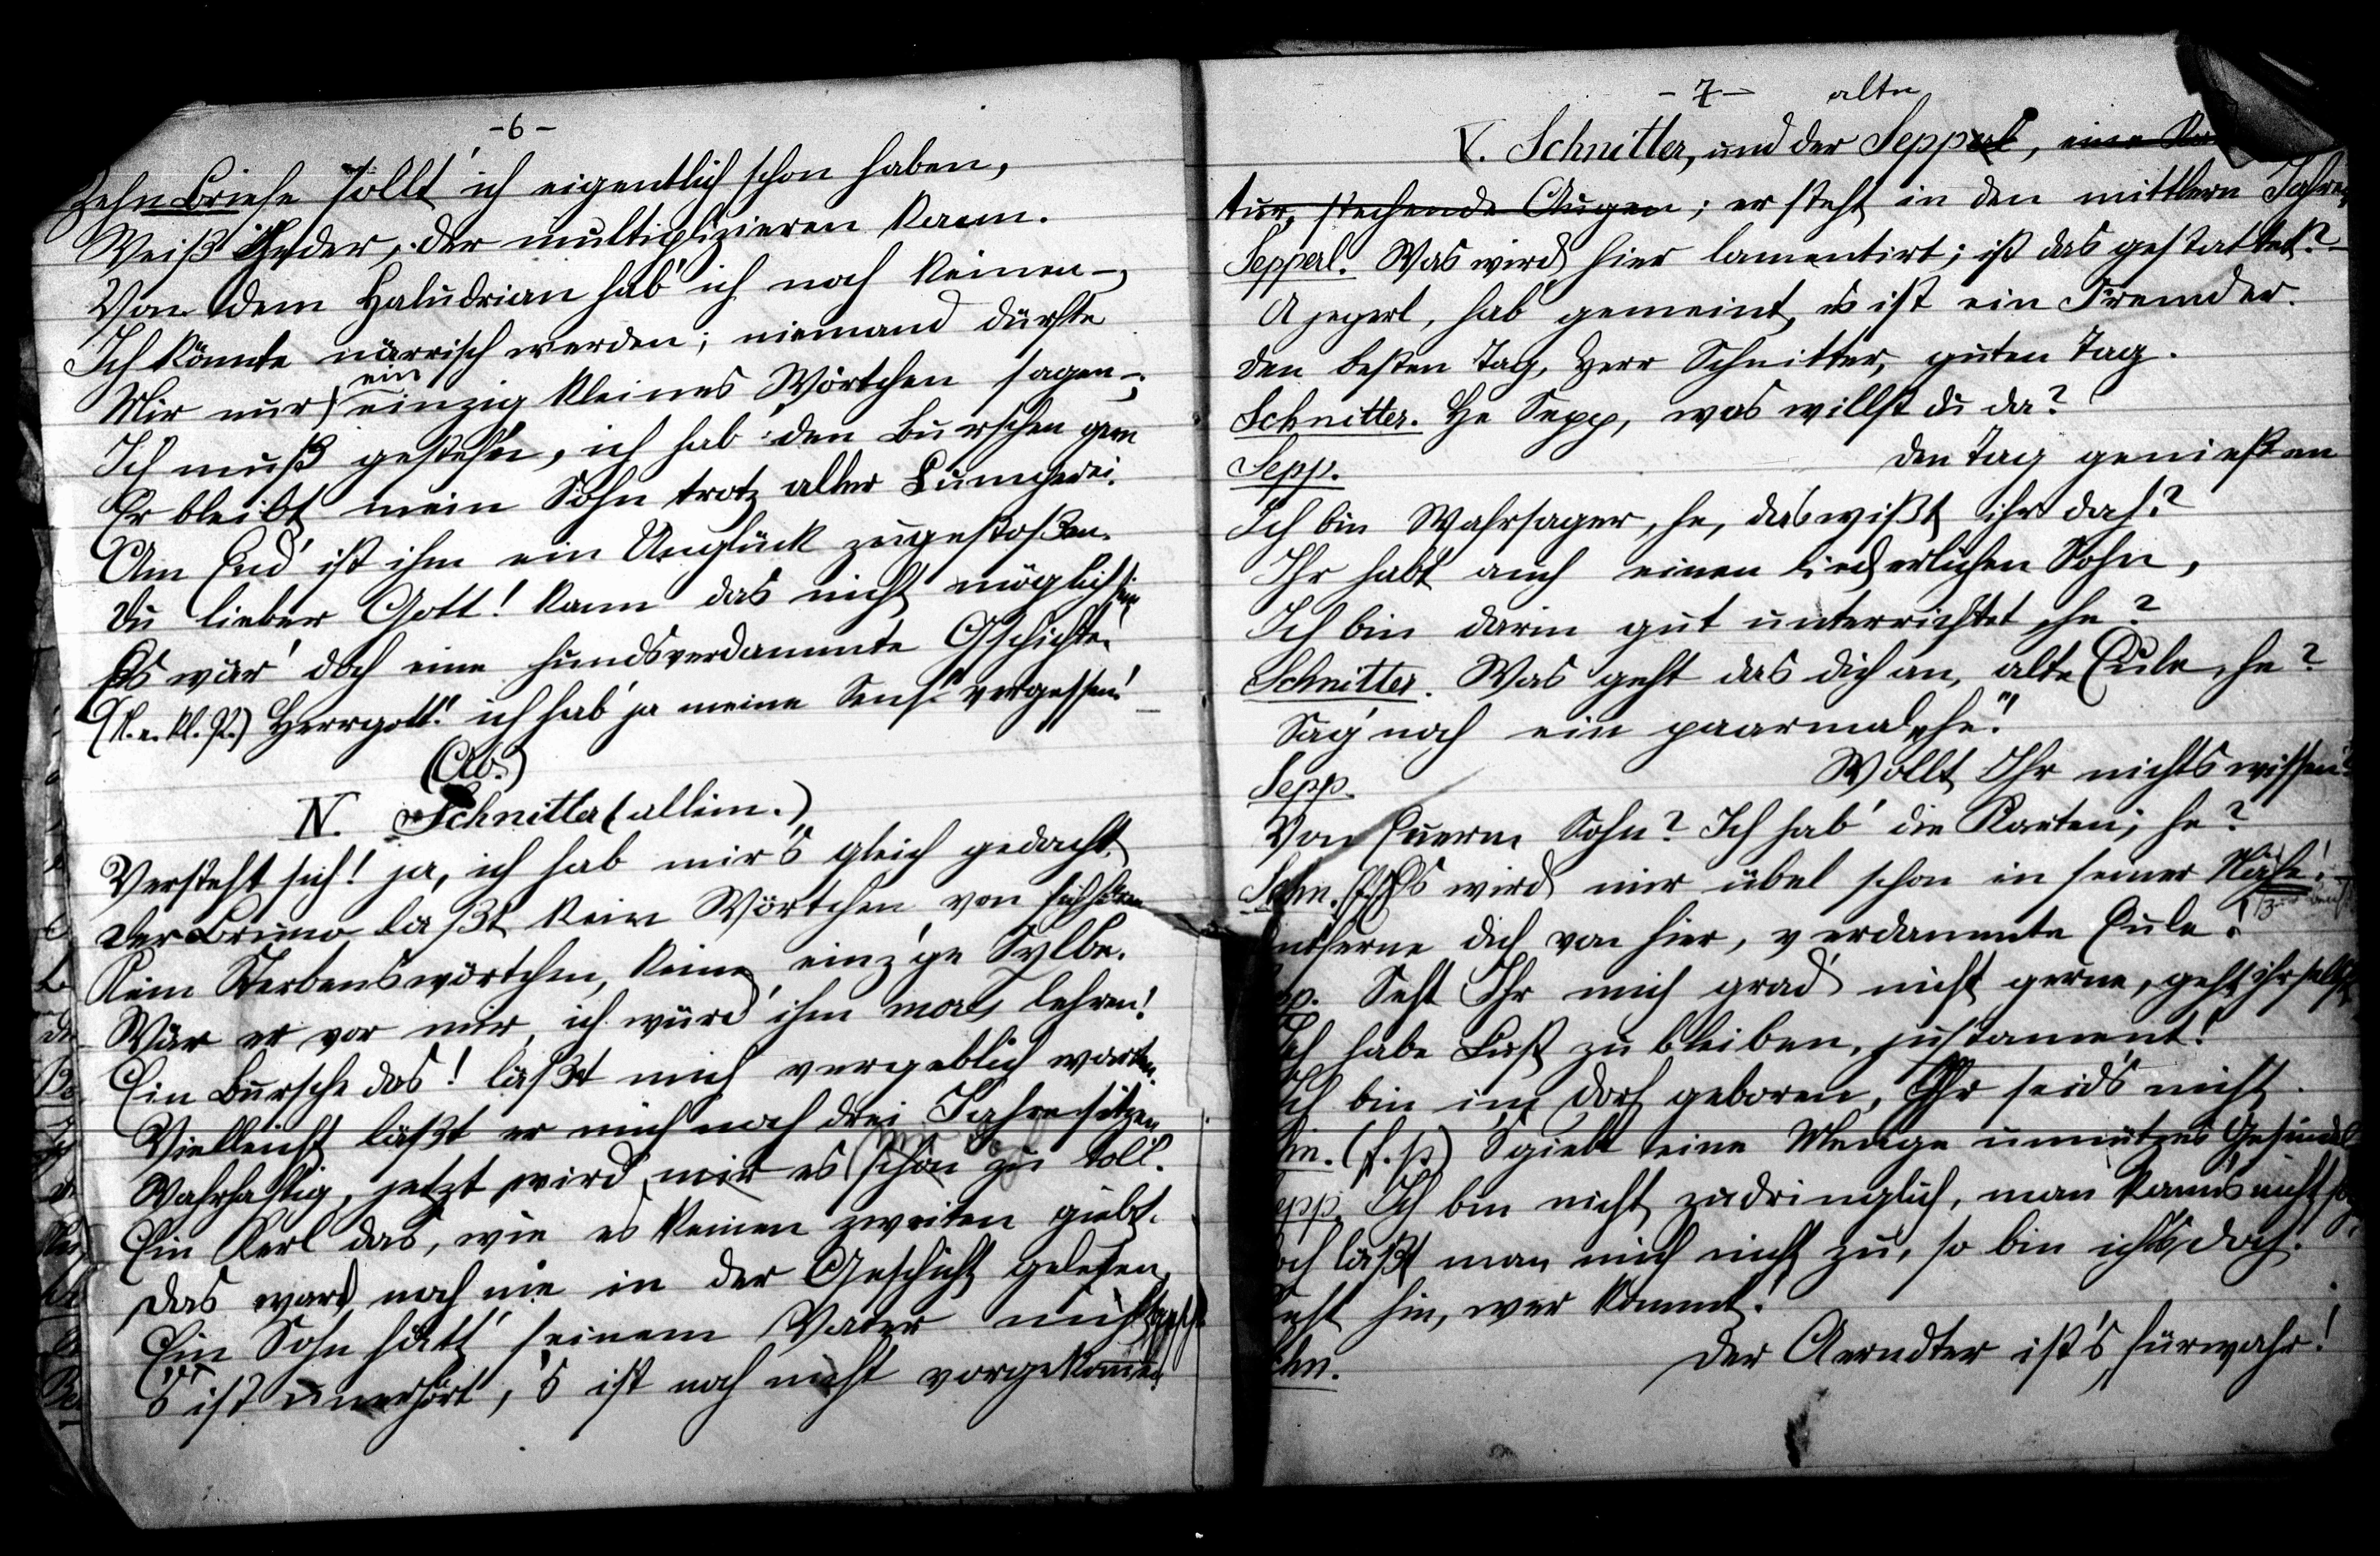 -6-
Zehn Briefe sollt' ich eigentlich schon haben,
Weiß Jeder, der multiplizieren kann.
Von dem Haludrian hab' ich noch keinen -,
Ich könnte närrisch werden; niemand dürfte
Mir nur ein einzig kleines Wörtchen sagen -;
Ich muß gesteh'n, ich hab' den Burschen gern
Er bleibt mein Sohn trotz aller Lumperei.
Am End' ist ihm ein Unglück zugestoßen.
Du lieber Gott! kann das nicht möglich sein
Es wär' doch eine hundsverdammte Gschichte!
(N. e. kl. P.) Herrgott! ich hab' ja meine Sens' vergessen!
(Ab.)
IV. Schnitter (allein.)
Versteht sich! ja, ich hab mir's gleich gedacht,
Der Bruno läßt kein Wörtchen von sich hören
Kein Sterbenswörtchen, keine einz'ge Sylbe.
Wär er vor mir, ich würd' ihm mores lehren!
Ein Bursche das! läßt mich vergeblich warten.
Vielleicht läßt er mich noch drei Jahre sitzen
Wahrhaftig, jetzt wird mir es schon zu toll.
Ein Kerl das, wie es keinen zweiten giebt.
Das ward noch nie in der Geschicht gelesen,
Ein Sohn hätt' seinem Vater nicht
's ist unerhört, 's ist noch nicht vorgekommen
-7-
alte
V. Schnitter, und der Sepperl, eine
tur, stechende Augen; er steht in den mittlern Jahren
Sepperl. Was wird hier lamentirt; ist das gestattet?
A jegerl, hab' gemeint, es ist ein Fremder.
Den besten Tag, Herr Schnitter, guten Tag.
Schnitter. He Sepp, was willst du da?
Sepp. Den Tag genießen
Ich bin Wahrsager, he, das wißt ihr doch?
Ihr habt auch einen liederlichen Sohn,
Ich bin darin gut unterrichtet, he?
Schnitter. Was geht das dich an, alte Eule, he?
Sag' noch ein paarmal „he!"
Sepp. Wollt Ihr nichts wissen
Von Euerm Sohn? Ich hab' die Karten; he?
Schn. Es wird mir übel schon in seiner Nähe!
Entferne dich von hier, verdammte Eule!
Sepp. Seht Ihr mich grad' nicht gerne, geht ihr selbst
Ich habe Lust zu bleiben, justament!
Ich bin im Dorf geboren, Ihr seid's nicht.
Schn. (f. s.) 's giebt eine Menge unnützes Gesindel
Sepp. Ich bin nicht zudringlich, man kann's nicht
Doch läßt man mich nicht zu, so bin ich's doch!
Seht hin, wer kommt!
Schn. Der Aerndter ist's fürwahr!